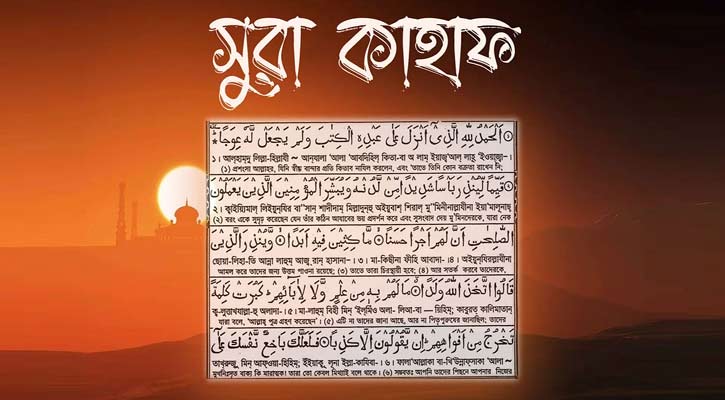 সুরা কাহাফ
اَلْحَمْدُ لِلّٰهِ الَّذِيْٓ اَنْزَلَ عَلٰى عَبْدِهِ الْكِتٰبَ وَلَمْ يَجْعَلْ لَّهٗ عِوَجًا
১। আল্‌হাম্‌দু লিল্লা-হিল্লাযী ~ আন্‌যালা 'আলা 'আবদিহিল্ কিতা-বা অ লাম্ ইয়াজ্‌'আল্ লাহূ 'ইওয়াজ্বা-।
(১) প্রশংসা আল্লাহর, যিনি স্বীয় বান্দার প্রতি কিতাব নাযিল করলেন, এবং 'তাতে তিনি কোন বক্রতা রাখেন নি;
قَيِّمًا لِّيُنْذِرَ بَاْسًا شَدِيْدًا مِّنْ لَّدُنْهُ وَيُبَشِّرَ الْمُؤْمِنِيْنَ الَّذِيْنَ يَعْمَلُوْنَ
২। ক্বাইয়্যিমাল্ লিইয়ুন্‌যির বা"সান্ শাদীদাম্ মিল্লাদুন্‌হু অইয়ুবাশ্ শিরাল্ মু"মিনীনাল্লাযীনা ইয়া'মালূনাছ্
(২) বরং একে সুদৃঢ় করেছেন যেন তাঁর কঠিন আযাবের ভয় প্রদর্শন করে এবং সুসংবাদ দেয় মু'মিনদেরকে, যারা নেক
الصّٰلِحٰتِ اَنَّ لَهُمْ اَجْرًا حَسَنًا مَّاكِثِيْنَ فِيْهِ اَبَدًا وَّيُنْذِرَ الَّذِيْنَ
ছোয়া-লিহা-তি আন্না লাহুম্ আজ্ব্ রান্ হাসানা-। ৩। মা-কিছীনা ফীহি আবাদা-। ৪। অইয়ুন্‌যিরাল্লাযীনা
আমল করে তাদের জন্য উত্তম পাওনা রয়েছে; (৩) তাতে তারা চিরস্থায়ী হবে; (৪) আর সতর্ক করবে তাদেরকে,
قَالُوا اتَّخَذَ اللّٰهُ وَلَدًا مَا لَهُمْ بِهٖ مِنْ عِلْمٍ وَّلَا لِاٰبَآئِهِمْ كَبُرَتْ كَلِمَةً
ক্ব-লুত্তাখযাল্লা-হু অলাদা-। ৫। মা-লাহুম্ বিহী মিন্ 'ইল্‌মিওঁ অলা- লিআ-বা — য়িহিম্; কাবুরত্ কালিমাতান্
যারা বলে, 'আল্লাহ্ পুত্র গ্রহণ করেছেন'। (৫) এটি না তাদের জানা আছে, আর না পিতৃপুরুষের জানাছিল; তাদের
تَخْرُجُ مِنْ اَفْوَاهِهِمْ اِنْ يَّقُوْلُوْنَ اِلَّا كَذِبًا فَلَعَلَّكَ بَاخِعٌ نَّفْسَكَ عَلٰٓى
তাখ্‌রুজু মিন্ আফ্‌ওয়া-হিহিম্; ইইয়াকু লূনা ইল্লা-কাযিবা-। ৬। ফালা'আল্লাকা বা-খি'উন্নাফ্‌সাকা 'আলা ~
মুখনিঃসৃত বাক্য কি মারাত্মক! তারা তো কেবল মিথ্যাই বলে থাকে। (৬) সম্ভবতঃ আপনি তাদের পিছনে আপনার নিজের